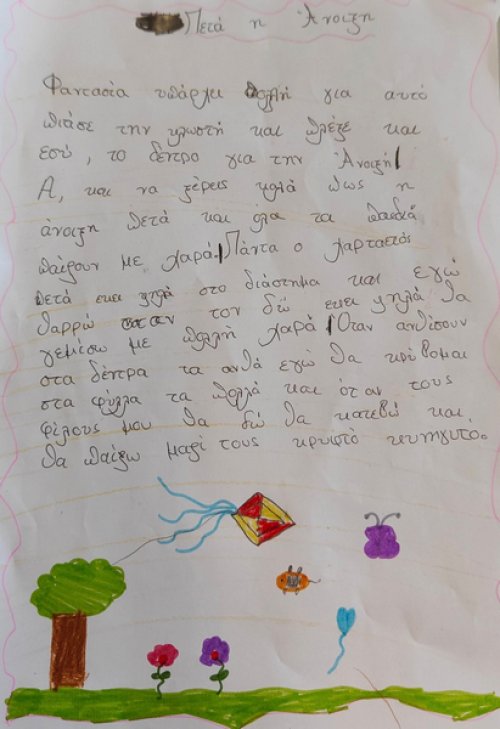 Πετά η Άνοιξη
Φαντασία υπάρχει πολλή για αυτό
πιάσε την κλωστή και πλέξε και
εσύ, το δέντρο για την Άνοιξη
Α, και να ξέρεις καλά πως η
άνοιξη πετά και όλα τα παιδιά
παίζουν με χαρά. Πάντα ο χαρταετός
πετά εκει ψηλά στο διάστημα και εγώ
θαρρώ σαν τον δώ εκει ψηλά θα
γεμίσω με πολλή χαρά Όταν ανθίσουν
στα δέντρα τα ανθά εγώ θα κρύβομαι
στα φύλλα τα πολλά και όταν τους
φίλους μου θα δώ θα κατεβώ και
θα παίξω μαζί τους κρυφτό κυνηγητό.